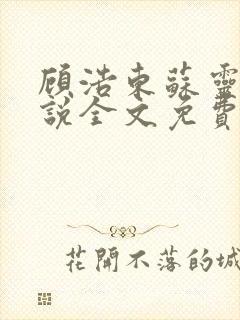 顾浩东蘇靈
說全文免費
花開不落的城